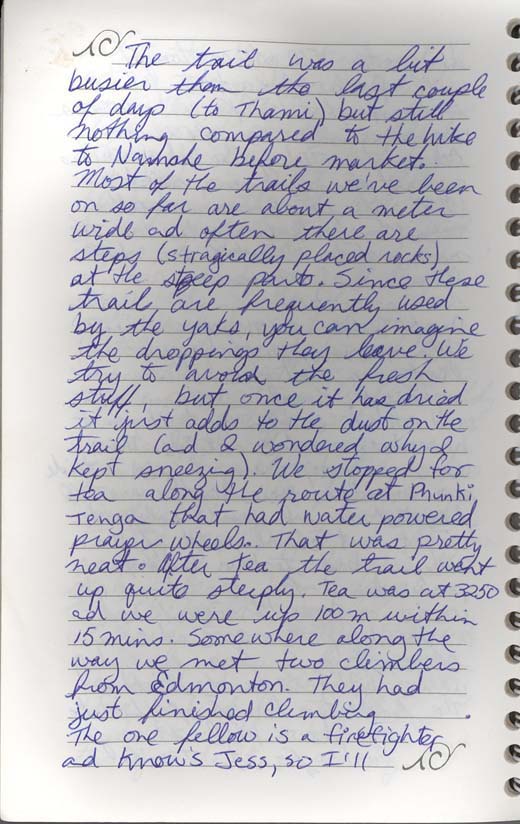 The trail was a bit
busier than the last couple
of days (to Thami) but still
nothing compared to the hike
to Namshe before market.
Most of the trails we've been
on so far are about a meter
wide ad often there are
steps (stragically placed rocks)
at the steep parts. Since these
trail are frequently used
by the yaks, you can imagine
the droppings they leave. We
try to avoid the fresh
stuff, but once it has dried
it just adds to the dust on the
trail (ad I wondered why I
kept sneezig). We stopped for
tea along the route at Phunki
Tenga that had water powered
prayer wheels. That was pretty
neat. After Tea the trail went
up quite steeply. Tea was at 3250
ad we were up 100m within
15 mins. Somewhere along the
way we met two climbers
from Edmonton. They had
just finished climbing .
The one fellow is a firefighter
ad Know's Jess, so I'll